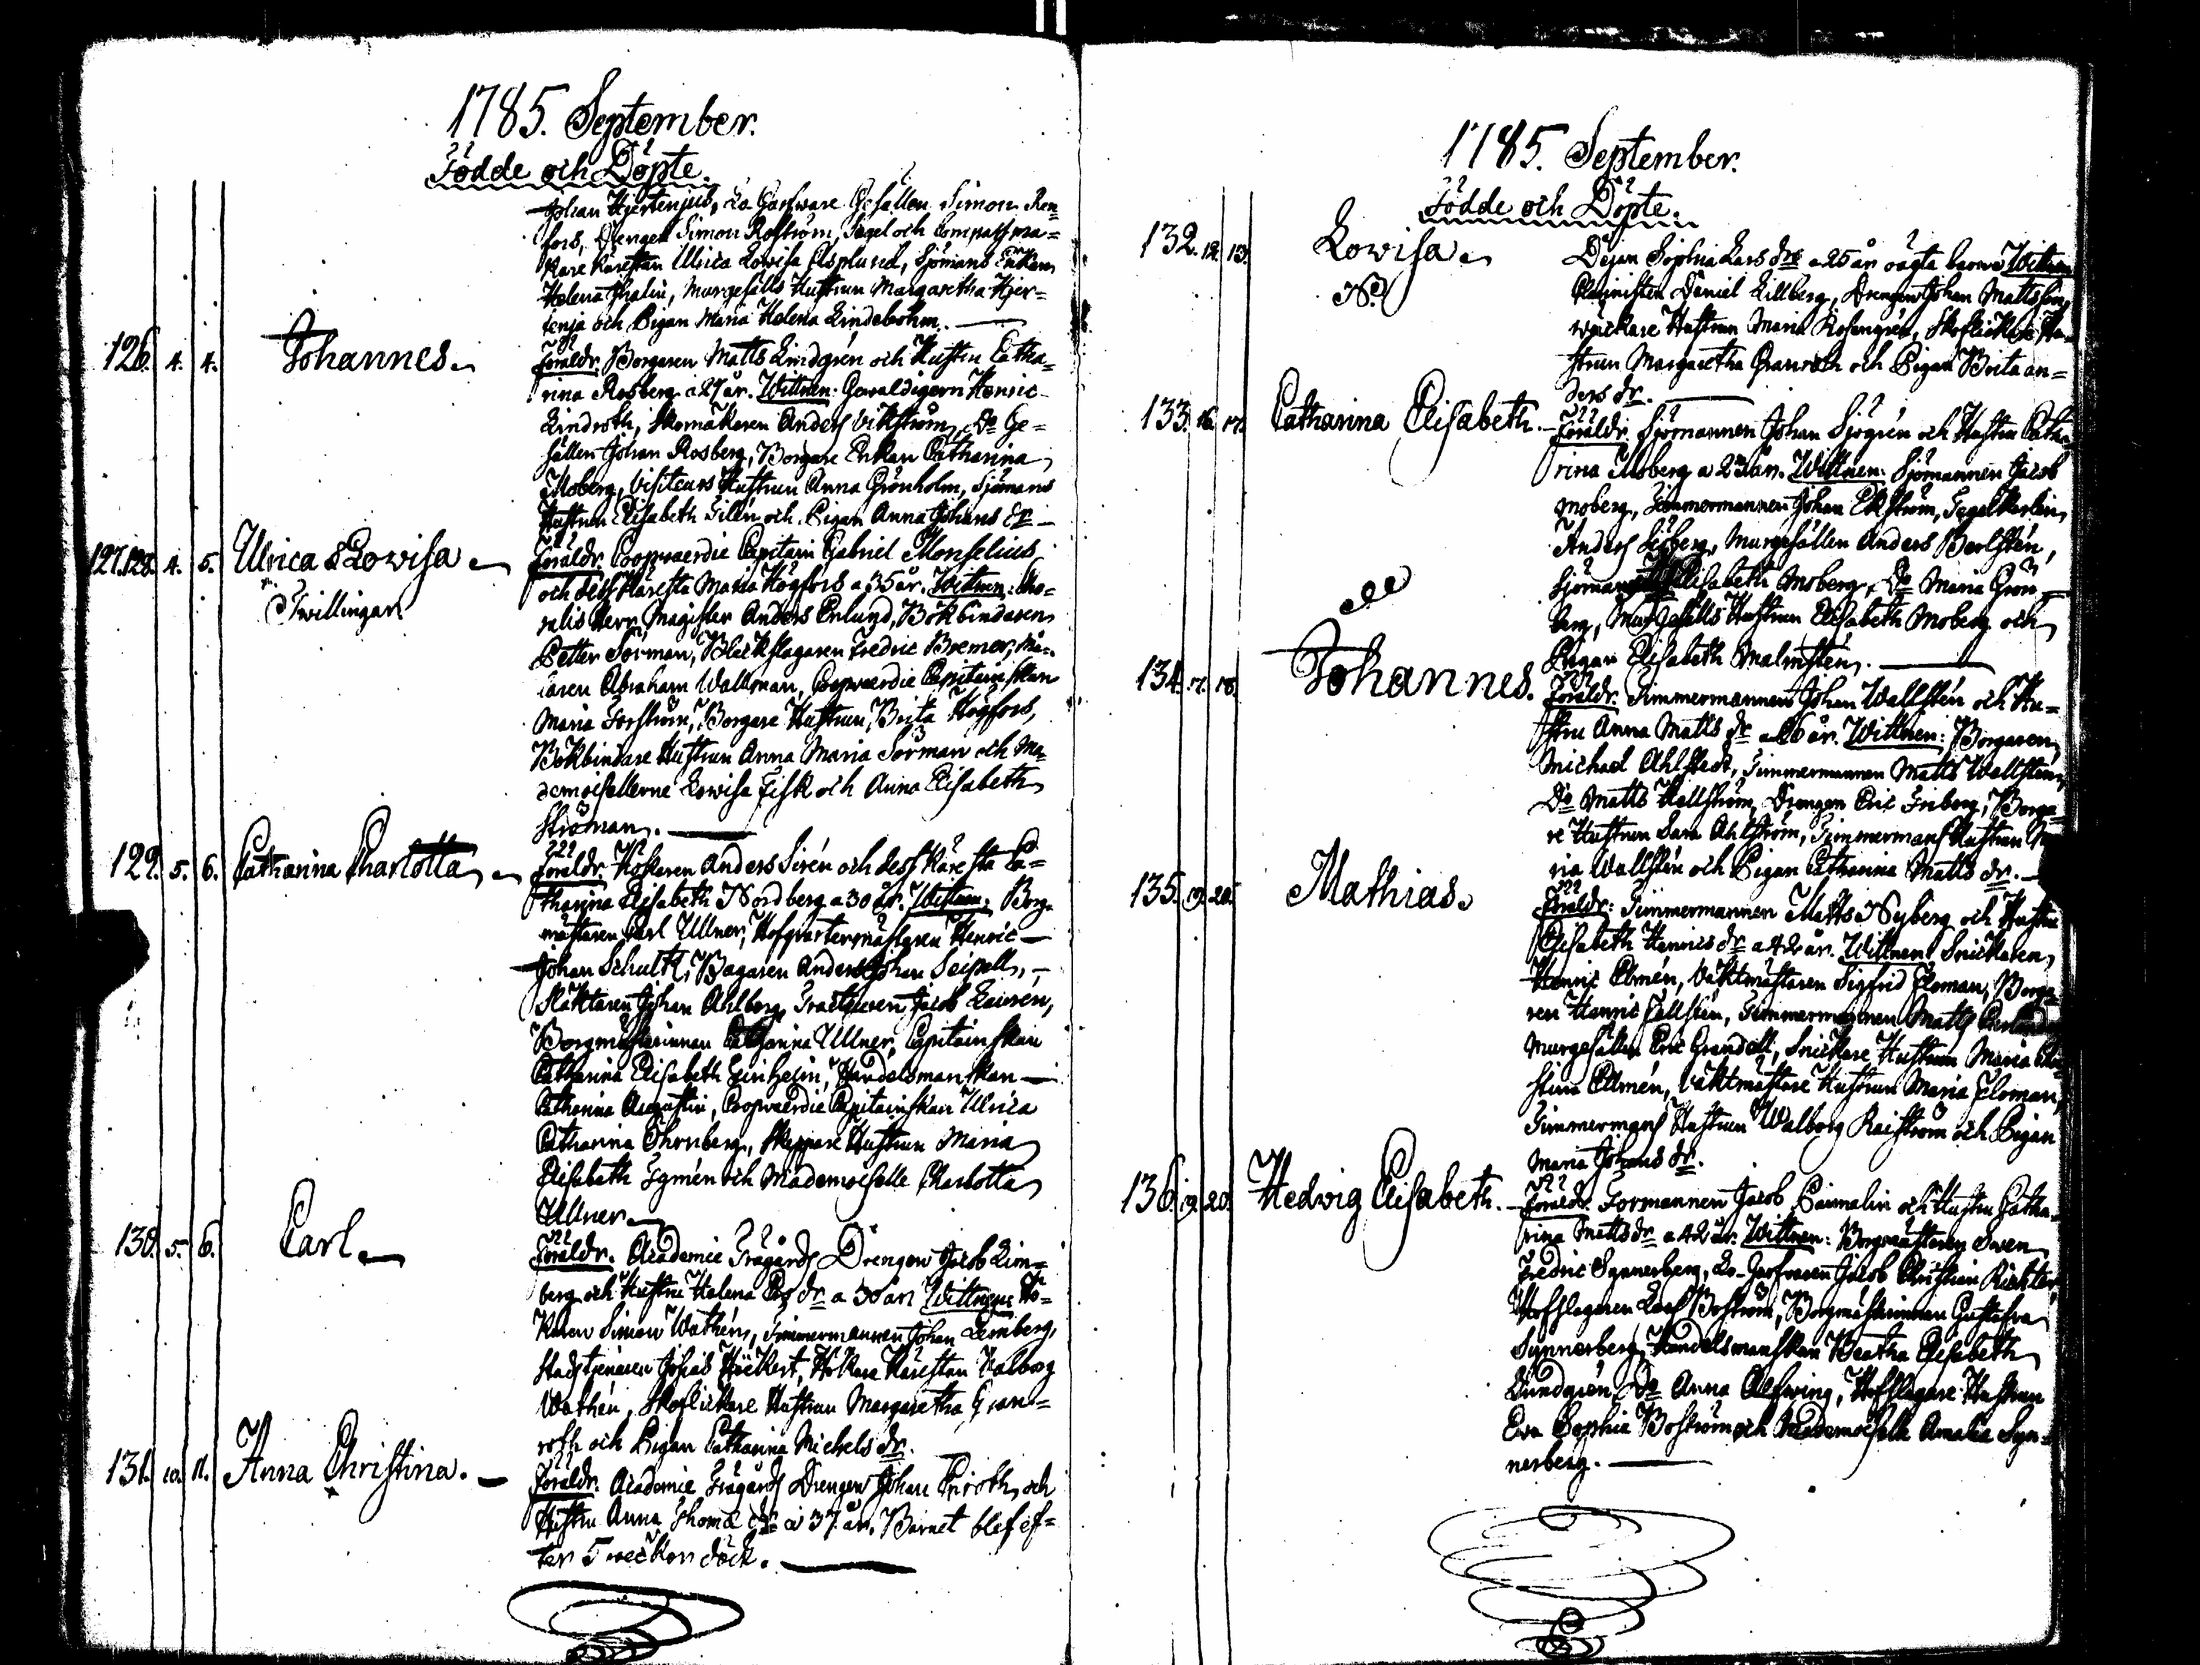 1785. September.
Födde och Döpte.
Johan Hjertenjus, La Garfware Gesällen Simon Ren=
fors, Drengen Simon Roström, Segel och Compassma=
kare Kärestan Ulrica Lowisa Elsplund, Sjömans Enkan
Helena Thalin, Murgesälls Hustrun Margaretha Hjer=
tenja och Pigan Maria Helena Lindebohm.
126. 4. 4. Johannes. Föräldr. Borgaren Matts Lindgrén och Hustru Catha=
rina Rosberg a 27 år. Wittnen: Gewaldigern Henric
Lindroth, Skomakaren Anders Wikström, Do Ge=
sällen Johan Rosberg, Borgare Enkan Catharina
Moberg, Visiteurs Hustrun Anna Grönholm, Sjömans
Hustrun Elisabeth Silén och Pigan Anna Johans dr
127.128. 4. 5. Ulrica & Lowisa Föräldr. Coopvaerdie Capitain Gabriel Monselius
Twillingar. och dess Käresta Maria Högfors a 35 år. Witnen: Cho=
ralis Herr Magister Anders Enlund, Bokbindaren
Petter Sörman, Bleckslagaren Fredric Bremer, Må=
laren Abraham Wallman, Coopvaerdie Capitainskan
Maria Forström, Borgare Hustrun Brita Högfors,
Bokbindare Hustrun Anna Maria Sörman och Ma=
demoisellerne Lowisa Fisk och Anna Elisabeth
Ströman.
129. 5. 6. Catharina Charlotta Föräldr. Hökaren Anders Sirén och dess Käresta Ca=
tharina Elisabeth Nordberg a 30 år. Wittnen: Borg=
mästaren Carl Ullner, Hofqvartermästaren Henric
Johan Schultz, Bagaren Anders Johan Seipell,
Slaktaren Johan Ahlberg, Tracteuren Jacob Laurén,
Borgmästarinnan Catharina Ullner, Capitainskan
Catharina Elisabeth, Handelsmanskan
Catharina Augustin, Coopvaerdie Capitainskan Ulrica
Catharina Öhrnberg, Skeppare Hustrun Maria
Elisabeth Egmén och Mademoiselle Charlotta
Ullner
130. 5. 6. Carl Föräldr. Academie Trägårds Drengen Jacob Lim=
berg och Hustru Helena dr a 30 år. Wittnen: Hö=
karen Simon Wathén, Timmermannen Johan Lemberg,
Stadstjenaren Höckert, Hökare Kärestan Walborg
Wathén, Skoflickare Hustrun Margaretha Gran=
roth och Pigan Catharina Michels dr.
131. 10. 11. Anna Christina. Föräldr. Academie Trägårds Drengen Johan Eriroth och
Hustru Anna Thomæ dr a 37 år. Barnet blef ef=
ter 5 weckor död.
1785. September.
Födde och Döpte.
132. 12. 13. Lowisa Dejan Sophia Lars drs a 25 år oägta barn. Wittnen
No Daniel Lillberg, Drengen Johan Mattsson,
Hustrun Maria Rosengrén, Skoflickare Hu=
strun Margaretha Granroth och Pigan Brita An=
ders dr.
133. 16. 17. Catharina Elisabeth. Föräldr. Sjömannen Johan Sjögrén och Hustru Catha=
rina Moberg a 23 år. Wittnen: Sjömannen Jacob
Moberg, Timmermannen Johan Ekström, Segelkarlen
Anders Sjöberg, Murgesällen Anders Berlstén,
Sjömans Elisabeth Moberg, Do Maria Grön=
berg, Murgesälls Hustrun Elisabeth Moberg och
Pigan Elisabeth Malmstén.
134. 17. 18. Johannes. Föräldr. Timmermannen Johan Wallstén och Hu=
stru Anna Matts dr a 26 år. Wittnen: Borgaren
Michael Ahlstedt, Timmermannen Matts Wallstén,
Do Matts Hallström, Drengen Eric Friberg, Borga=
re Hustrun Sara Ahlström, Timmermans Hustrun Ma
ria Wallstén och Pigan Catharina Matts dr.
135. 19. 20. Mathias. Föräldr: Timmermannen Matts Nyberg och Hustru
Elisabeth Henrics dr a 42 år. Wittnen Snickaren
Henric Elmén, Vaktmästaren Sigfrid Floman, Borga=
ren Henric Fellstén, Timmermannen Matts
Murgesällen Eric Grandell, Snickare Hustrun Maria Chri=
stina Elmén, Vaktmästare Hustrun Maria Floman,
Timmermans Hustrun Walborg Kaiström och Pigan
Maria Johans dr.
136. 19. 20. Hedwig Elisabeth. Föräldr. Formannen Jacob Caimalin och Hustru Catha=
rina Matts dr a 42 år. Wittnen: Borgmästaren Swen
Fredric Synnerberg, La Garfvaren Jacob Christian Richter,
Hofslagaren Boström, Borgmästarinnan Gustafva
Synnerberg, Handelsmanskan Beatha Elisabeth
Lundgrén, Do Anna Alfwing, Hofslagare Hustrun
Eva Sophia Boström och Mademoiselle Amalia Syn=
nerberg.